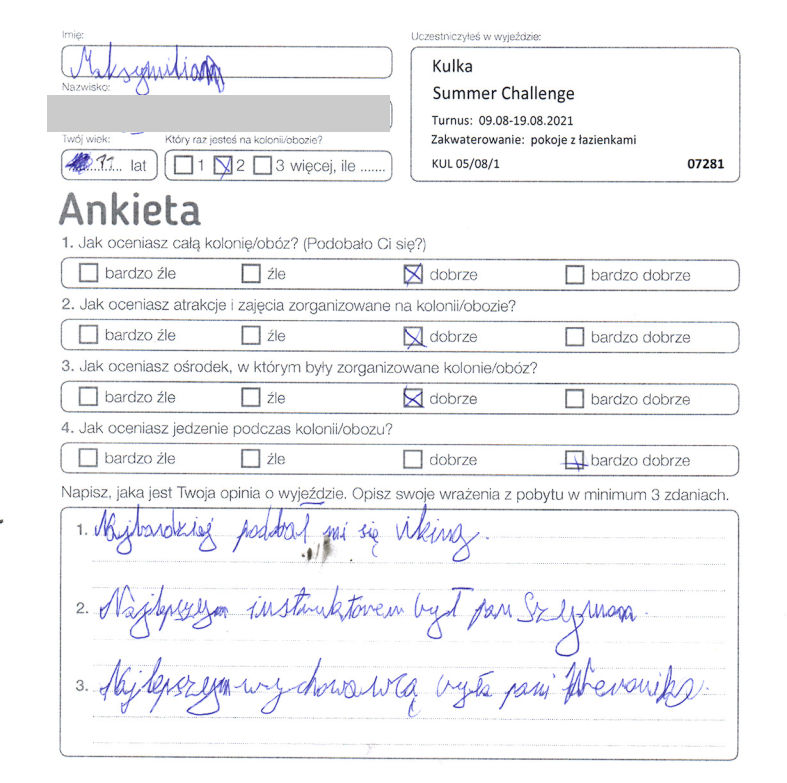 Imię:
Maksymilian
Nazwisko:
Twój wiek:
11 lat
Który raz jesteś na kolonii/obozie?
1 2 3 więcej, ile .......
Uczestniczyłeś w wyjeździe:
Kulka
Summer Challenge
Turnus: 09.08-19.08.2021
Zakwaterowanie: pokoje z łazienkami
KUL 05/08/1 07281
Ankieta
1. Jak oceniasz całą kolonię/obóz? (Podobało Ci się?)
bardzo źle źle dobrze bardzo dobrze
2. Jak oceniasz atrakcje i zajęcia zorganizowane na kolonii/obozie?
bardzo źle źle dobrze bardzo dobrze
3. Jak oceniasz ośrodek, w którym były zorganizowane kolonie/obóz?
bardzo źle źle dobrze bardzo dobrze
4. Jak oceniasz jedzenie podczas kolonii/obozu?
bardzo źle źle dobrze bardzo dobrze
Napisz, jaka jest Twoja opinia o wyjeździe. Opisz swoje wrażenia z pobytu w minimum 3 zdaniach.
1. Najbardziej podobał mi się viking.
2. Najlepszym instruktorem był pan Szymon.
3. Najlepszym wychowawcą była pani Weronika.